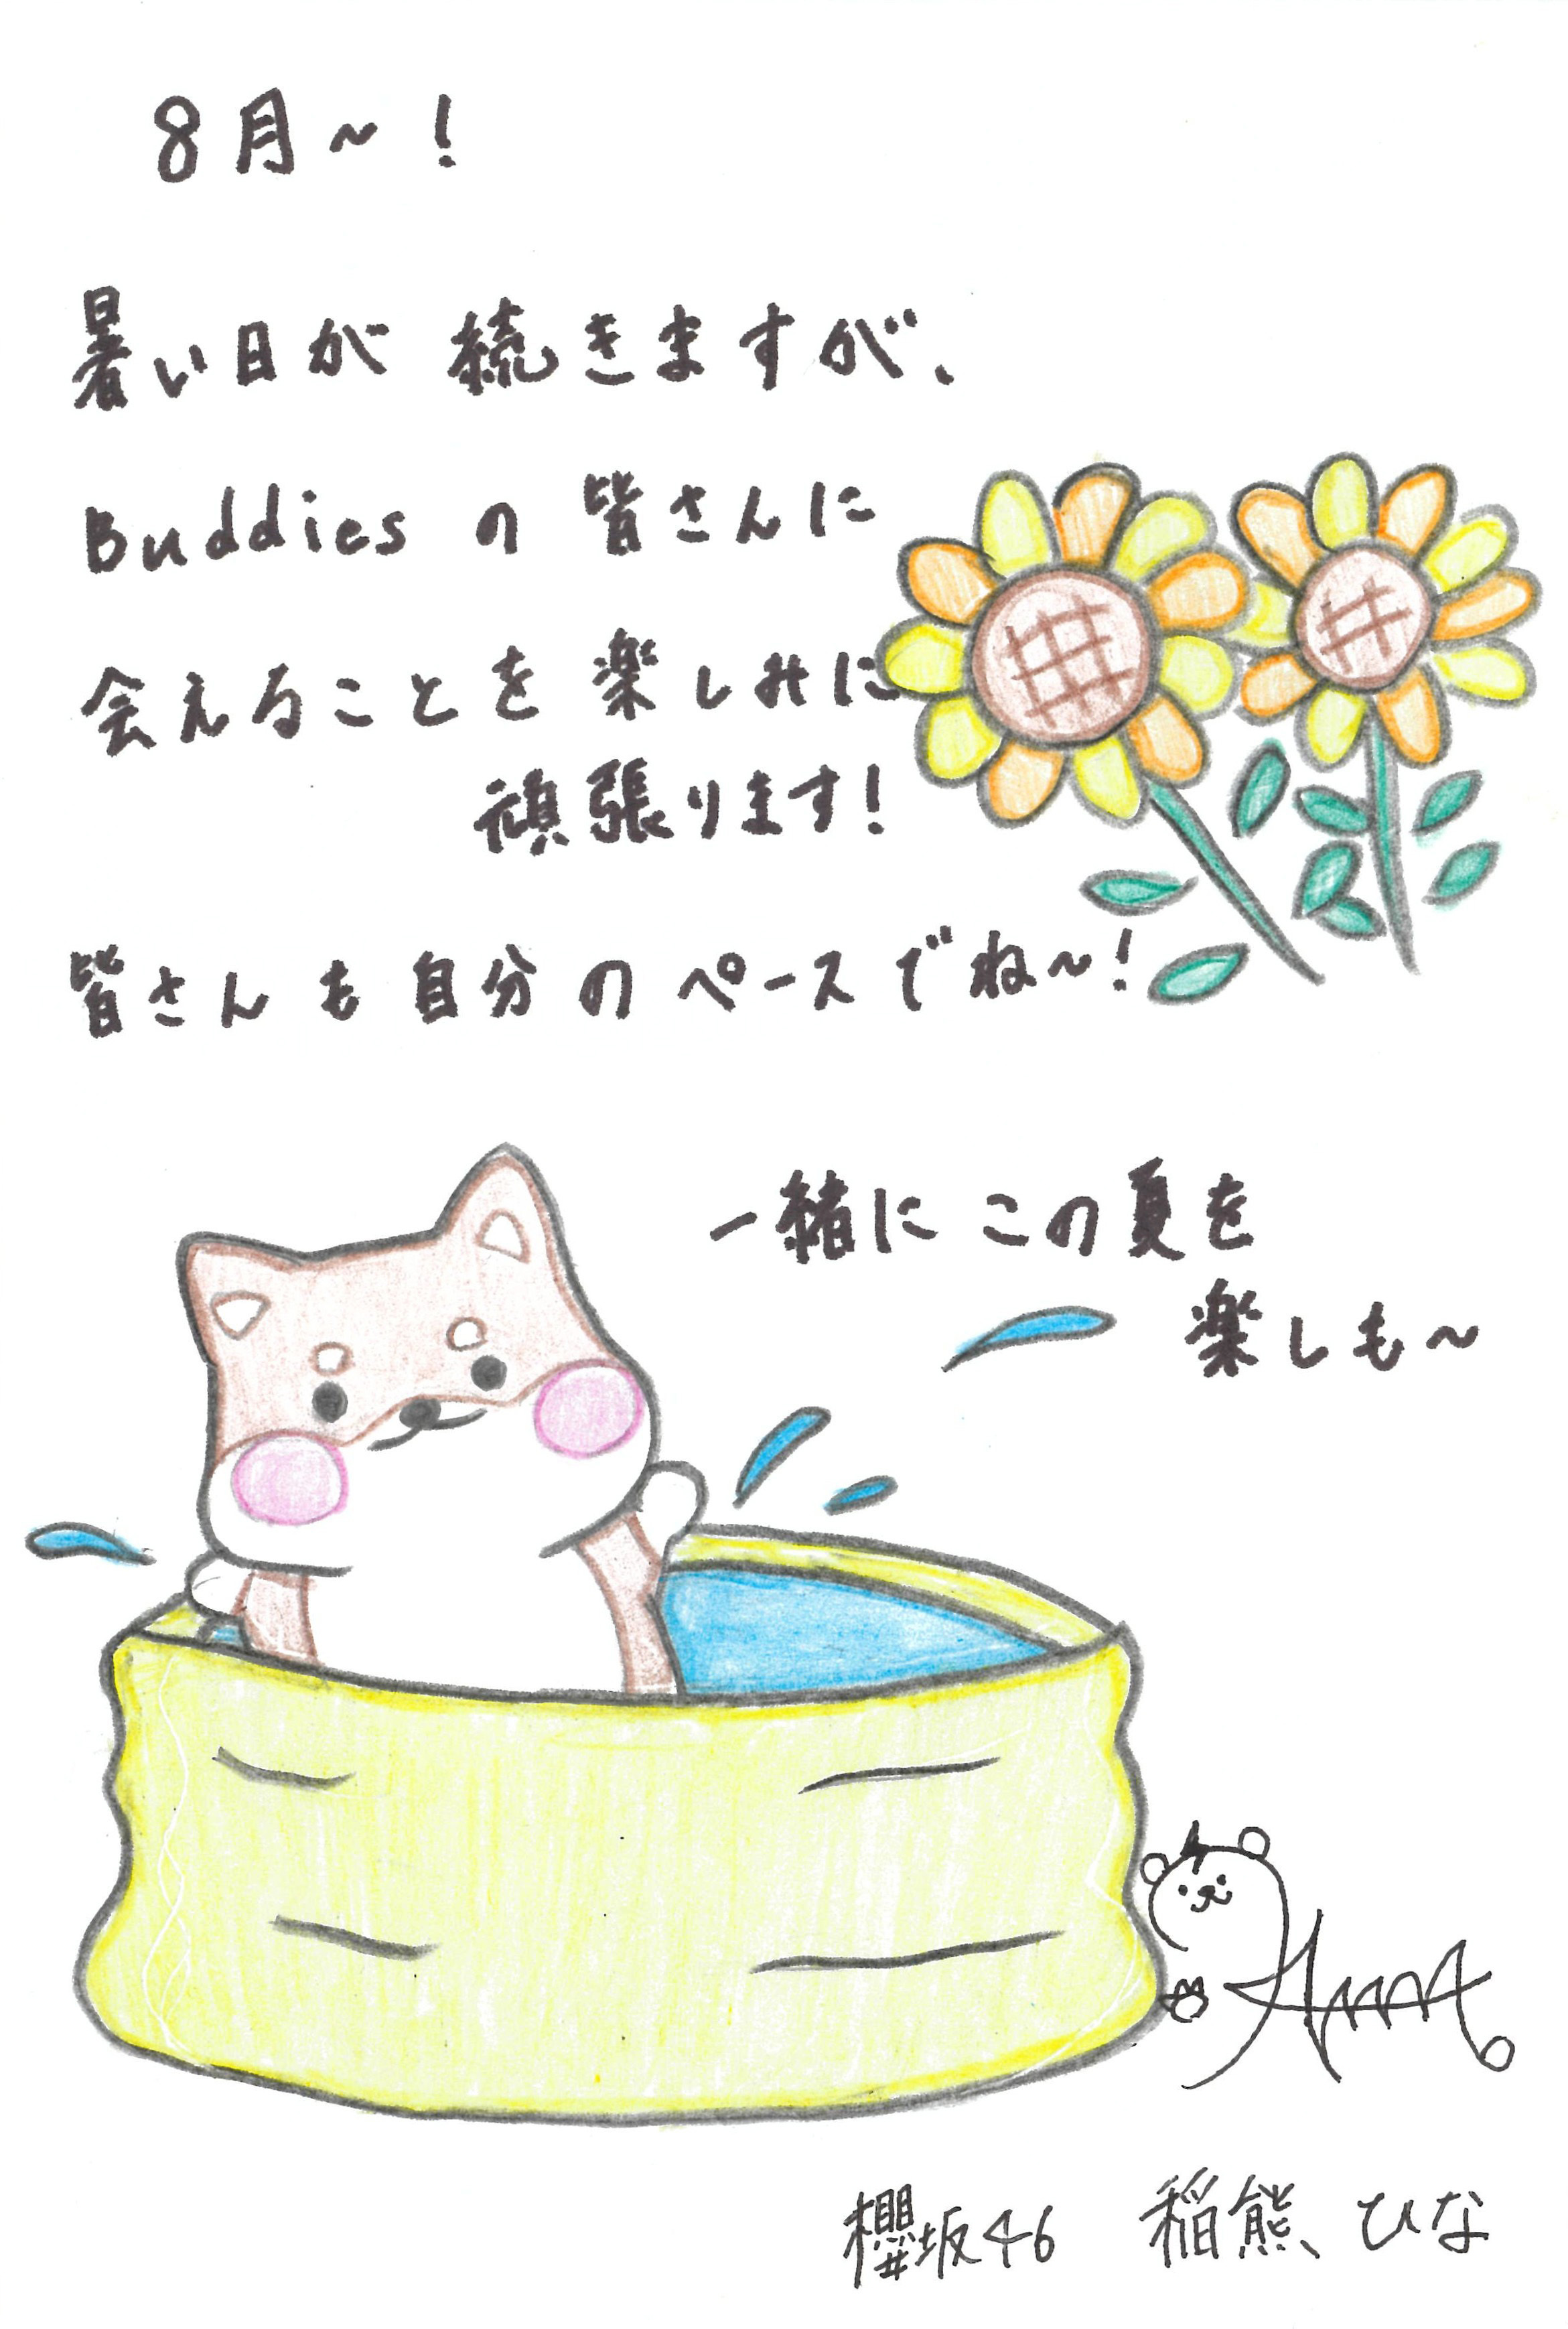 8月~!
暑い日が続きますが、
Buddiesの皆さんに
会えることを楽しみに
頑張ります!
皆さんも自分のペースでね~!
一緒にこの夏を
楽しも~
櫻坂46 稲熊、ひな